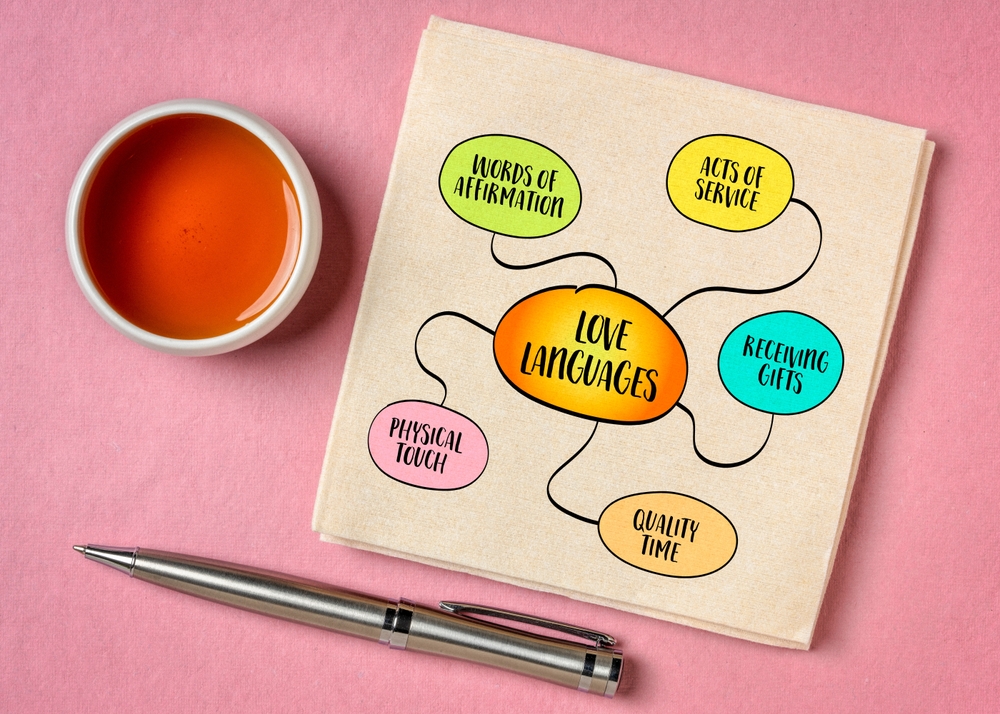 WORDS OF
AFFIRMATION
ACTS OF
SERVICE
LOVE
LANGUAGES
RECEIVING
GIFTS
PHYSICAL
TOUCH
QUALITY
TIME